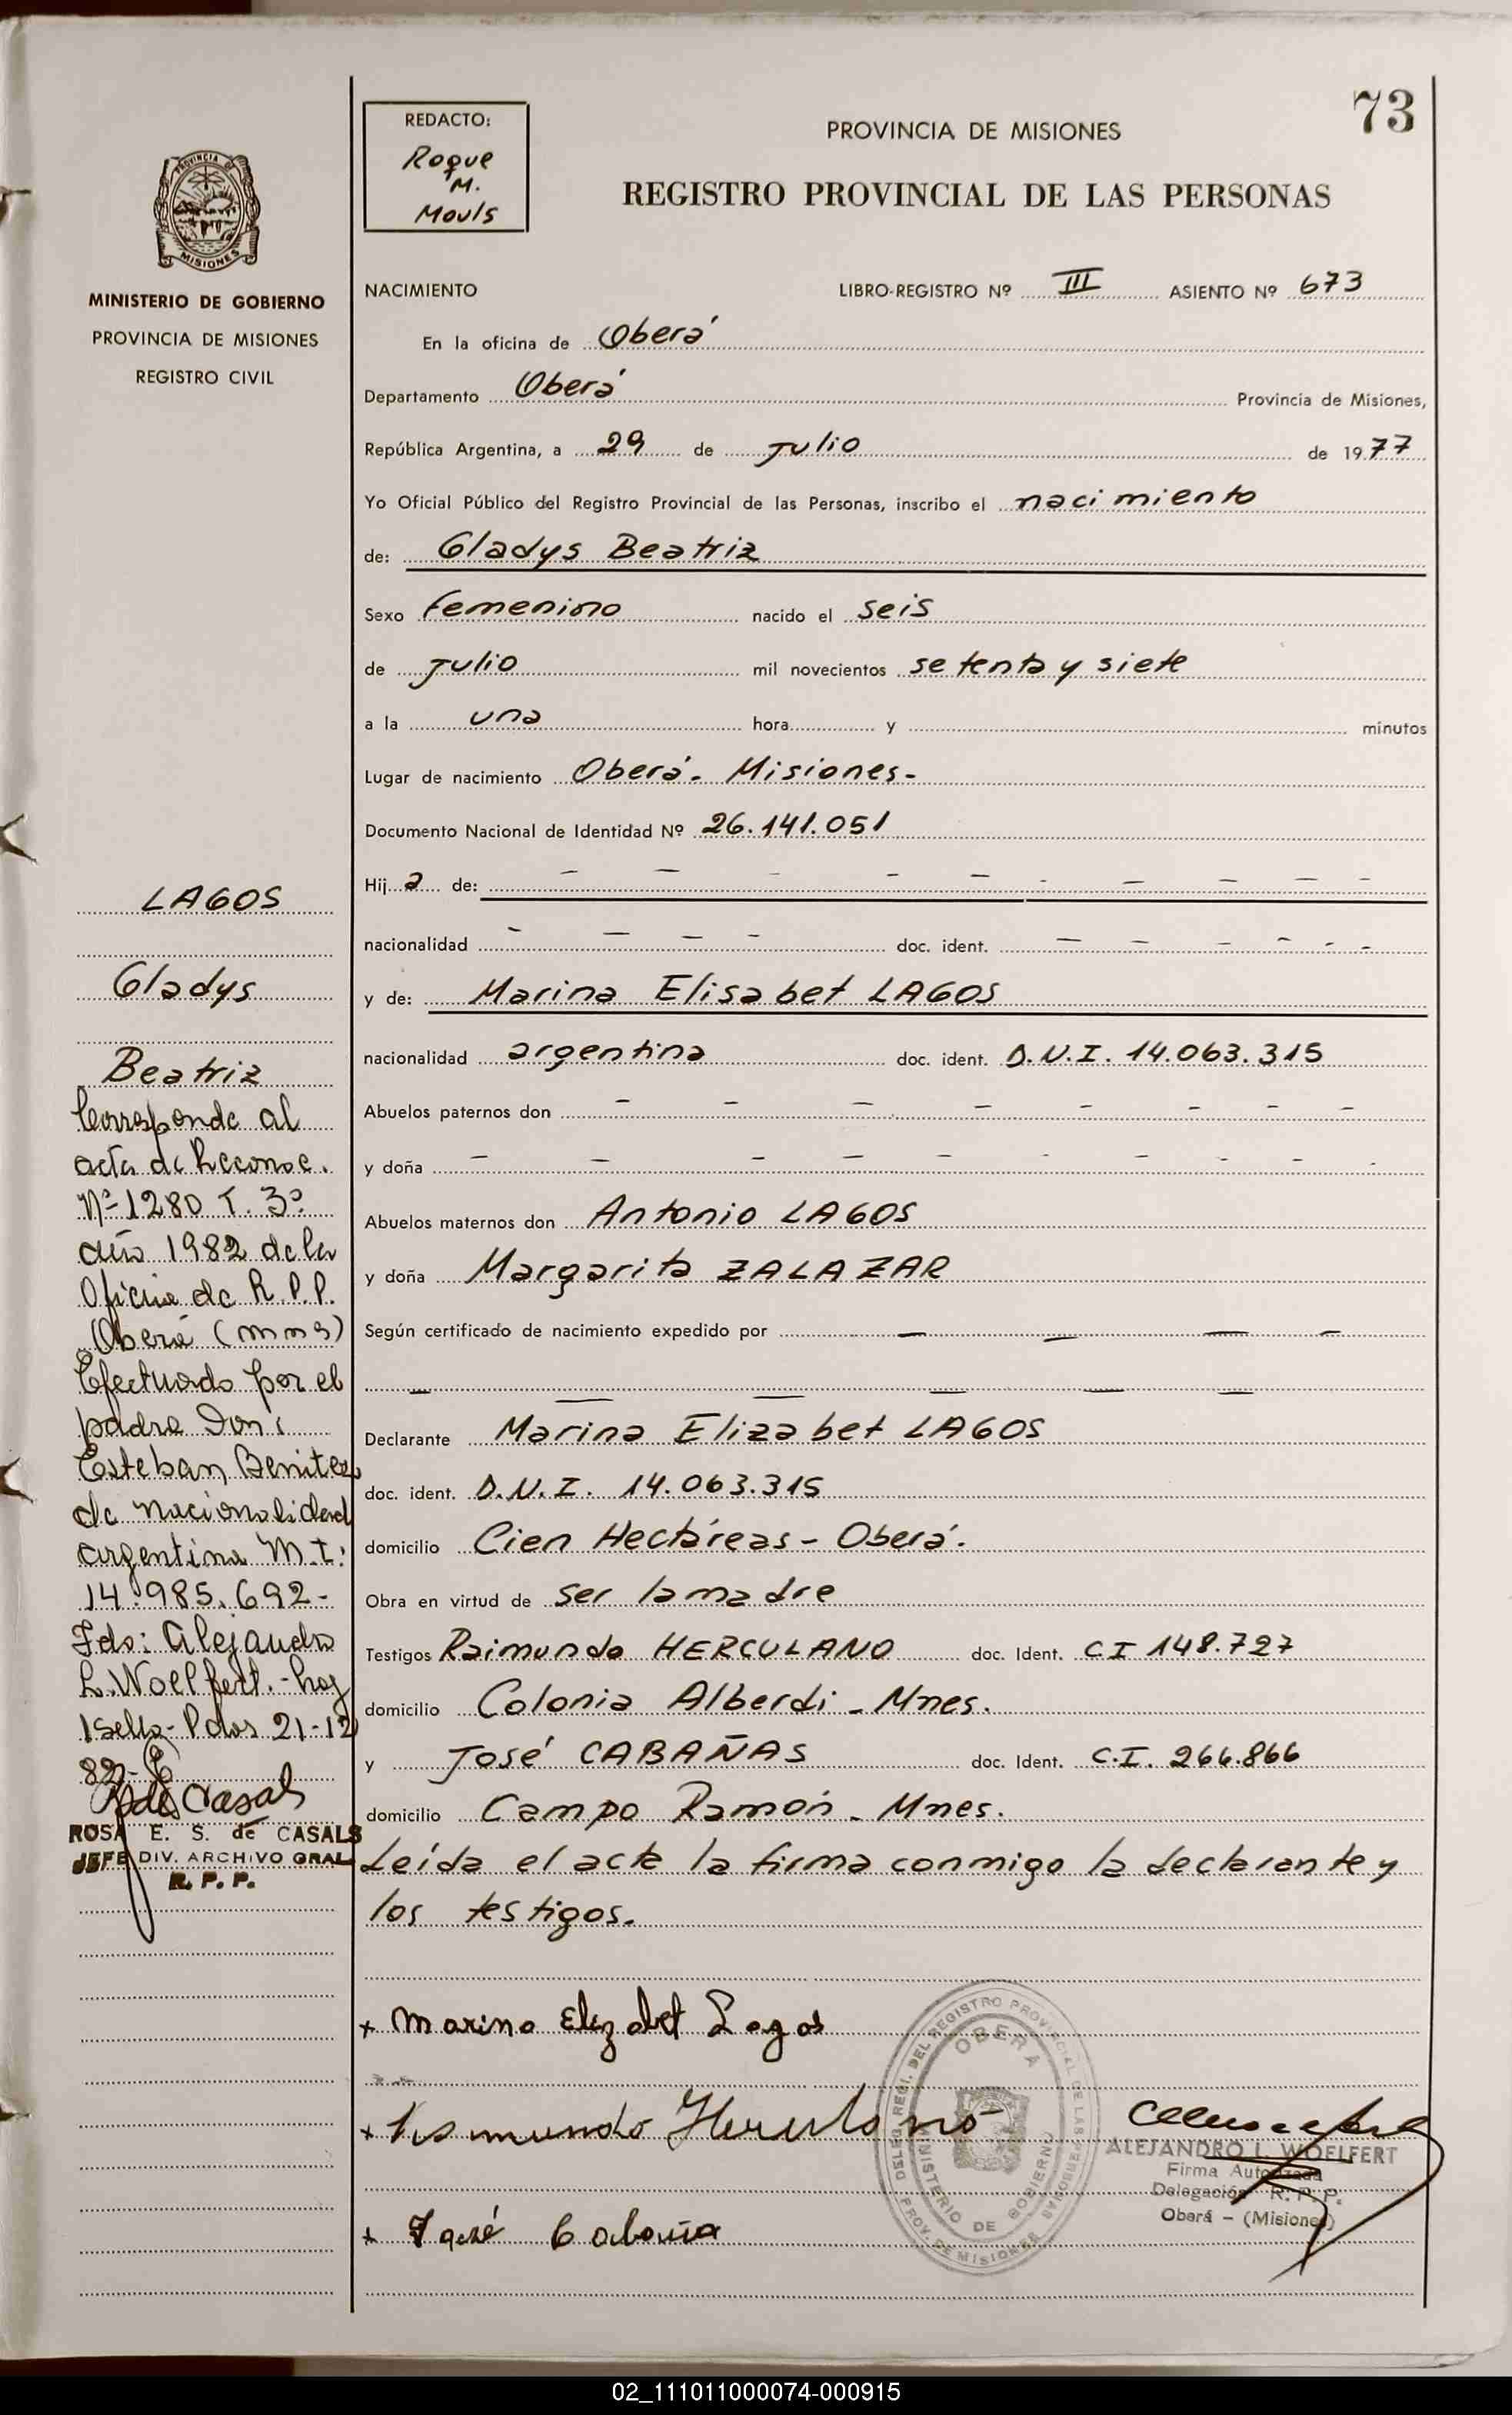 73
REDACTO:
Roque
M.
Mouls
PROVINCIA DE MISIONES
REGISTRO PROVINCIAL DE LAS PERSONAS
PROVINCIA DE
MISIONES
MINISTERIO DE GOBIERNO
PROVINCIA DE MISIONES
REGISTRO CIVIL
NACIMIENTO LIBRO-REGISTRO Nº III ASIENTO Nº 673
En la oficina de Oberá
Departamento Oberá Provincia de Misiones,
República Argentina, a 29 de julio de 1977
Yo Oficial Público del Registro Provincial de las Personas, inscribo el nacimiento
de: Gladys Beatriz
Sexo femenino nacido el seis
de julio mil novecientos setenta y siete
a la una hora y minutos
Lugar de nacimiento Oberá. Misiones-
Documento Nacional de Identidad Nº 26.141.051
Hija de: - - - - - - - - - -
nacionalidad - - - - doc. ident. - - - - - -
y de: Marina Elisabet LAGOS
nacionalidad argentina doc. ident. D.N.I. 14.063.315
Abuelos paternos don - - - - - - - -
y doña - - - - - - - - - -
Abuelos maternos don Antonio LAGOS
y doña Margarita ZALAZAR
Según certificado de nacimiento expedido por - - - -
- - - - - -
Declarante Marina Elizabet LAGOS
doc. ident. D.N.I. 14.063.315
domicilio Cien Hectáreas - Oberá.
Obra en virtud de ser la madre
Testigos Raimundo HERCULANO doc. Ident. CI 148.727
domicilio Colonia Alberdi - Mnes.
y José CABAÑAS doc. Ident. C.I. 266.866
domicilio Campo Ramón - Mnes.
Leída el acta la firma conmigo la declarante y
los testigos.
x Marina Elizabet Lagos
x Herculano
x José Cabaña
LAGOS
Gladys
Beatriz
Corresponde al
acta de Reconoc.
Nº 1280 T. 3º
año 1982 de la
Oficina de R.P.P.
Oberá (mns)
Efectuado por el
padre Don:
Esteban Benitez
de nacionalidad
argentina M.I:
14.985.692-
Fdo: Alejandro
L. Woelfert.- hay
1 sello- Pdas 21-12
82-
ROSA E. S. de CASALS
JEFE DIV. ARCHIVO GRAL
R. P. P.
DELEG. REGI. DEL REGISTRO PROVINCIAL DE LAS PERSONAS
OBERA
MINISTERIO DE GOBIERNO
PROV. DE MISIONES
ALEJANDRO L. WOELFERT
Firma Autorizada
Delegación R. P. P.
Oberá - (Misiones)
02_111011000074-000915